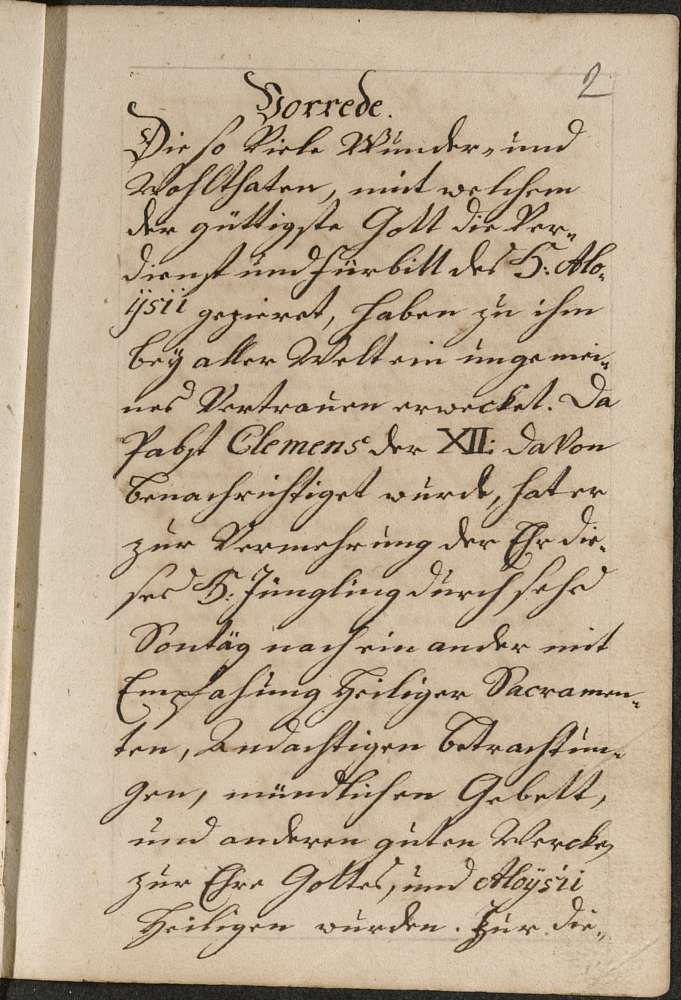 2
Vorrede.
Die so Viele Wunder- und
Wohlthaten, mit welchem
der güttigste Gott die Ver-
dienst und Fürbitt des H: Alo-
ÿsii gezieret, haben zu ihm
beÿ aller Welt ein ungemei-
nes Vertrauen erwecket. Da
Pabst Clemens der XII: davon
benachrichtiget wurde, hat er
zur Vermehrung der Ehr die-
ses H: Jüngling durch sechs
Sontäg nach ein ander mit
Empfahung Heiliger Sacramen-
ten, Andachtigen betrachtun-
gen, mündlichen Gebett,
und anderen guten Wercken
zur Ehre Gottes, und Aloÿsii
Heiligen wurden. Für die-